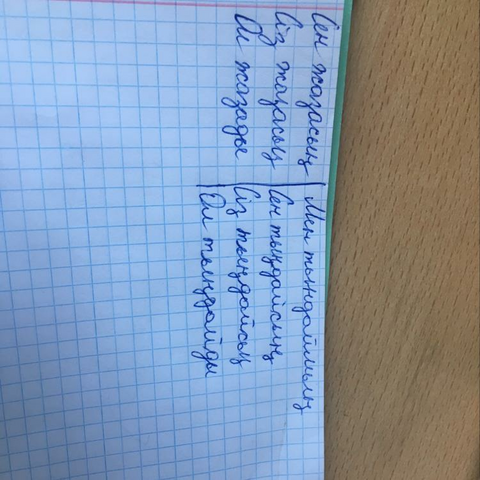 Сен жазасың | Мен тыңдаймың
Сіз жазасың | Сен тыңдайсың
Ол жазады | Сіз тыңдайсың
| Ол тыңдайды